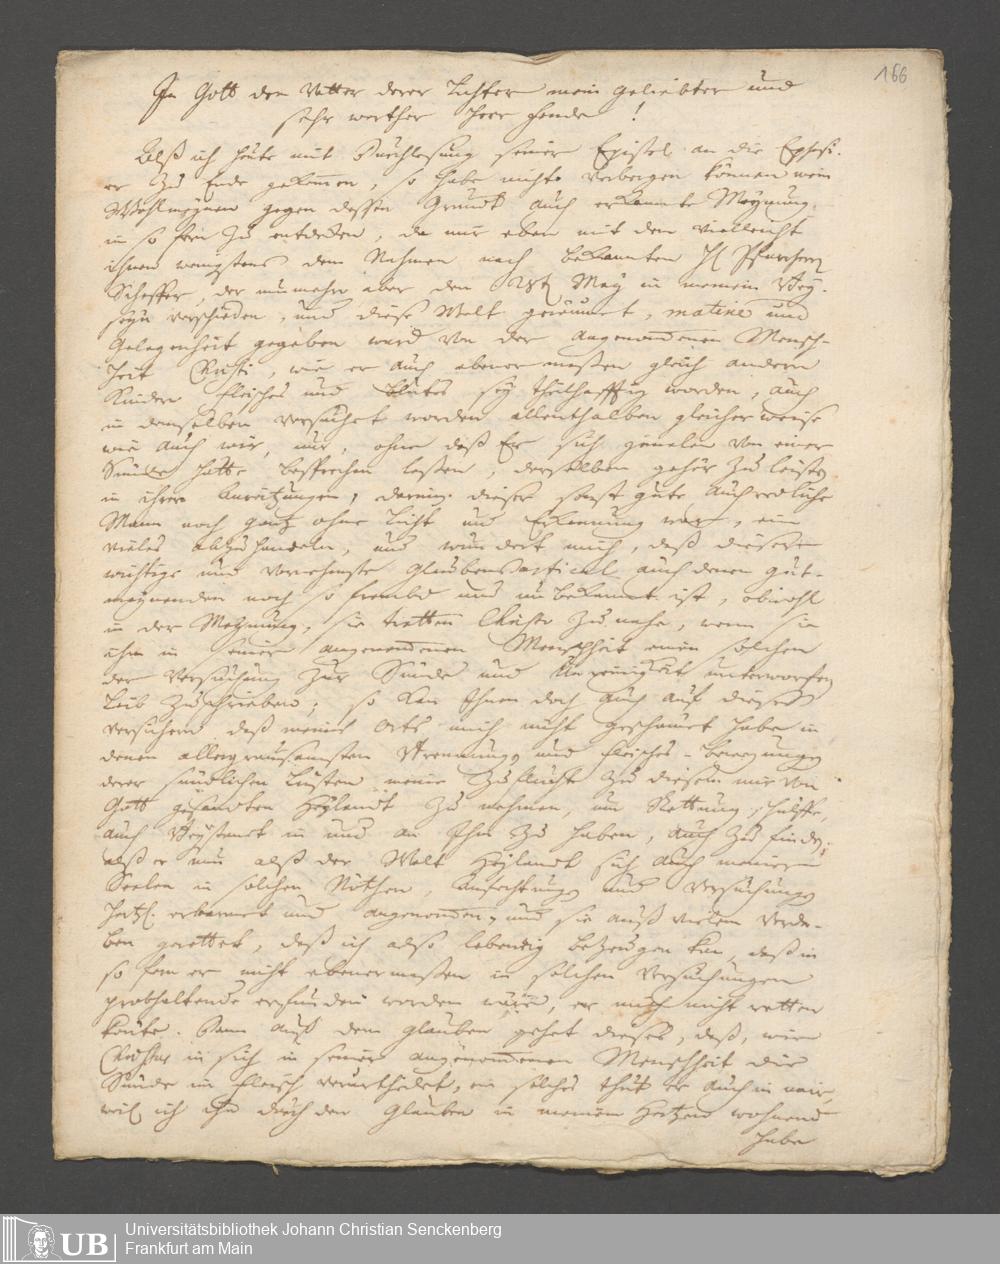 166
In Gott dem Vatter derer Lichter mein geliebter und
sehr werther Herr Fende!
Alß ich heute mit Durchlesung seiner Epistel an die Ephesi-
er zu Ende gekommen, so habe nicht verbergen können mein
Wohlmeynen gegen dessen Grundt auch erkannte Meynung
in so fern zu entdecken, da mir eben mit dem vielleicht
ihnen wenigstens dem Nahmen nach bekannten H. Pfarrherr
Scheffer, der nunmehr aber den 28t May in meinem Bey-
seyn verschieden, und diese Welt geräumet, matine und
Gelegenheit gegeben ward von der angenommenen Mensch-
heit Christi, wie er auch ebener maßen gleich andern
Kindern Fleisches und Blutes sey theilhafftig worden, auch
in demselben versuchet worden allenthalben gleicher weise
wie auch wir, nur, ohne daß Er sich jemalen von einer
Sünde hatte besprechen laßen, derselben gehör zu leisten
in ihren Anreitzungen, darin dieser sonst gute auch redliche
Mann noch gantz ohne Licht und Erkennung war, ein
vieles abzuhandeln, und wundert mich, daß dieser
wichtige und vornehmste Glaubensarticul auch denen gut-
meynenden noch so frembd und unbekannt ist, obwohl
in der Meynung, sie tretten Christo zu nahe, wenn sie
ihm in seiner angenommenen Menschheit einen solchen
der Versuchung zur Sünde und Unreinigkeit unterworffen
Leib zuschrieben; so kan Ihnen doch auch auf dieses
versichern daß meines Orts mich nicht geschämet habe in
denen allergrausamsten Brennung und Fleisches-bewegung
derer sündlichen Lüsten meine Zuflucht zu diesem mir von
Gott gesandten Heylandt zu nehmen, um Rettung, Hülffe,
auch Beystandt in und an Ihm zu haben, auch zu finden;
alß er nun alß der Welt Heylandt sich auch meiner
Seelen in solchen Nöthen, Anfechtung und Versuchung
hertzl. erbarmet und angenommen, und sie auß vielem Verder-
ben gerettet, daß ich also lebendig bezeugen kan, daß in
so fern er nicht ebenermaßen in solchen Versuchungen
probhaltende erfunden worden wäre, er mich nicht retten
könte. Dann auß dem Glauben gehet dieses, daß, wie
Christus in sich in seiner angenommenen Menschheit die
Sünde im Fleisch verurtheilet, ein solches thut er auch in mir,
weil ich ihn durch den Glauben in meinem Hertzen wohnend
habe
UB
Universitätsbibliothek Johann Christian Senckenberg
Frankfurt am Main